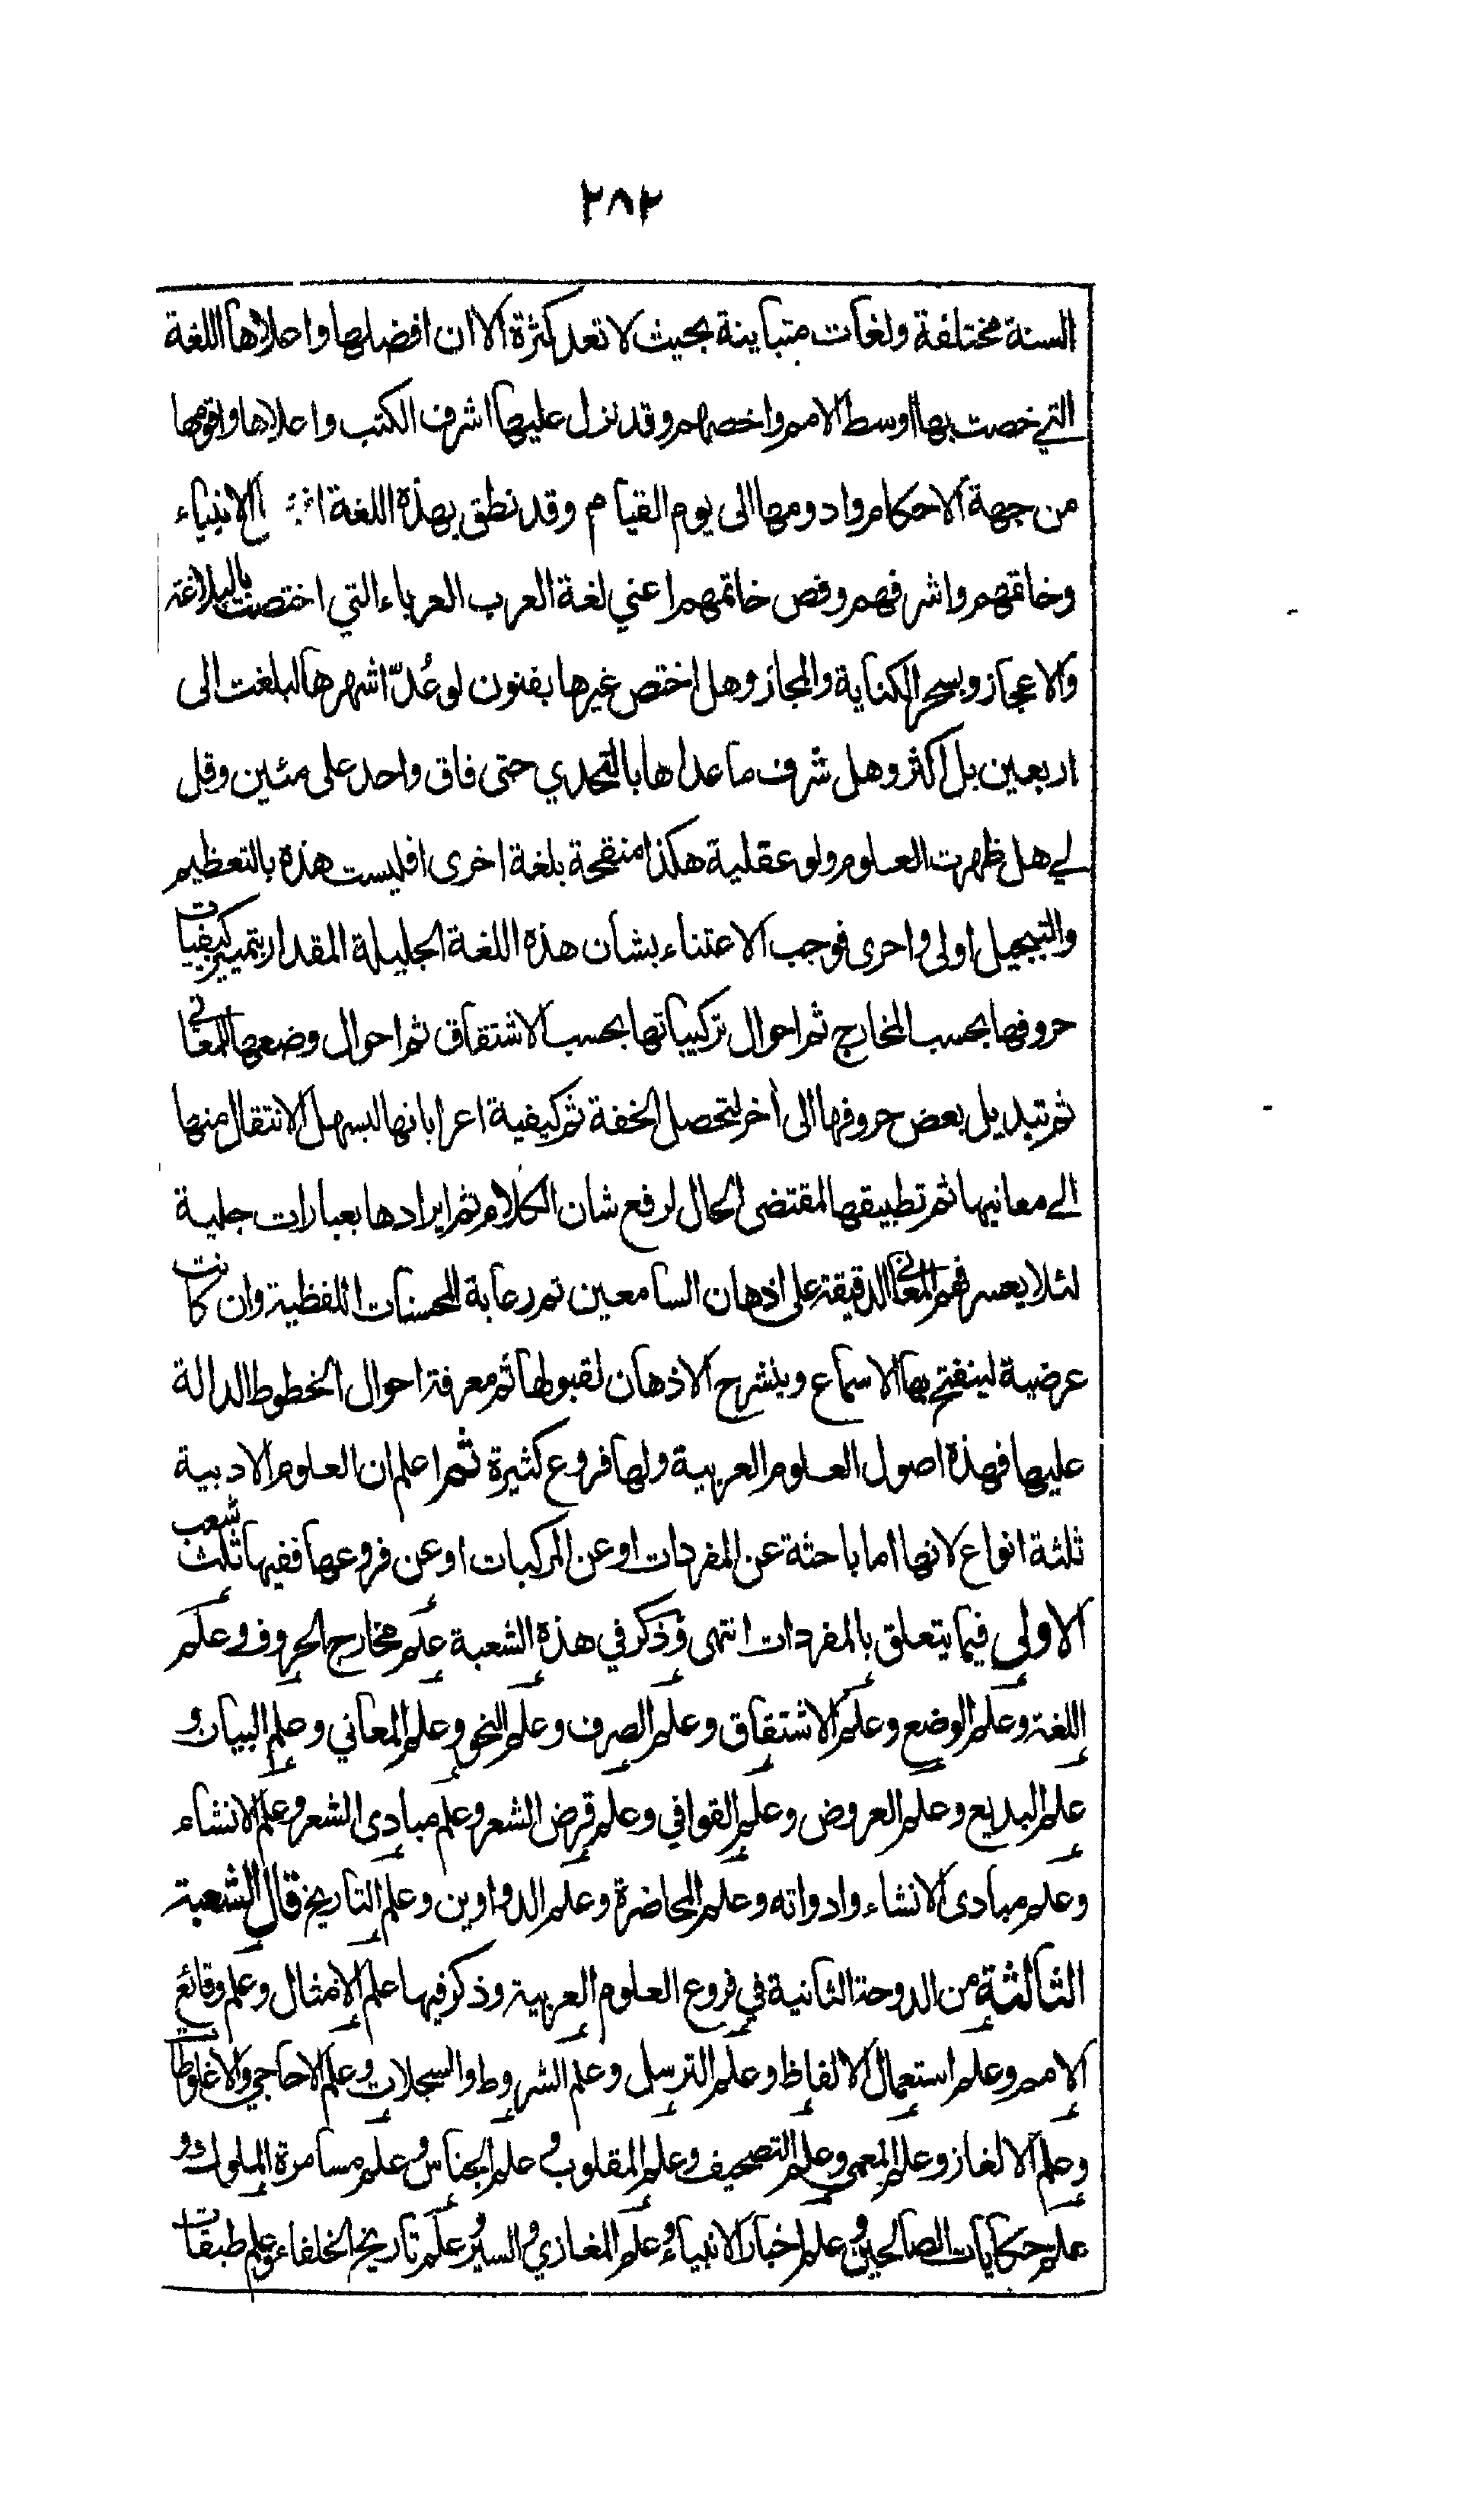 ٢٨٢
السنة مختلفة ولغات متباينة بحيث لا تعد كثرة الا ان افضلها واعلاها اللغة
التي خصت بها اوسط الامم واخصهم وقد نزل عليها اشرف الكتب واعلاها واقومها
من جهة الاحكام وادومها الى يوم القيام وقد نطق بهذه اللغة الانبياء
وخاتمهم واشرفهم وفص خاتمهم اعني لغة العرب العرباء التي اختصت بالبلاغة
والاعجاز وبسحر الكناية والمجاز وهل اختص غيرها بفنون لو عُدّ اشهرها لبلغت الى
اربعين بل اكثر وهل شرف ما عداها بالتحدي حتى فاق واحد على مئين وقل
لي هل ظهرت العلوم ولو عقلية هكذا منقحة بلغة اخرى افليست هذه بالتعظيم
والتبجيل اولى واحرى فوجب الاعتناء بشان هذه اللغة الجليلة المقدار بتمييز كيفيات
حروفها بحسب المخارج ثم احوال تركيباتها بحسب الاشتقاق ثم احوال وضعها للمعاني
ثم تبديل بعض حروفها الى اخر لتحصل الخفة ثم كيفية اعراباتها ليسهل الانتقال منها
الى معانيها ثم تطبيقها لمقتضى الحال لرفع شان الكلام ثم ايرادها بعبارات جلية
لئلا يعسر فهم المعاني الدقيقة على اذهان السامعين ثم رعاية المحسنات اللفظية وان كانت
عرضية لينفتح بها الاسماع وينشرح الاذهان لقبولها ثم معرفة احوال الخطوط الدالة
عليها فهذه اصول العلوم العربية ولها فروع كثيرة ثم اعلم ان العلوم الادبية
ثلثة انواع لانها اما باحثة عن المفردات او عن المركبات او عن فروعها ففيها ثلث شعب
الاولى فيما يتعلق بالمفردات انتهى وذكر في هذه الشعبة علم مخارج الحروف وعلم
اللغة وعلم الوضع وعلم الاشتقاق وعلم الصرف وعلم النحو وعلم المعاني وعلم البيان و
علم البديع وعلم العروض وعلم القوافي وعلم قرض الشعر وعلم مبادى الشعر وعلم الانشاء
وعلم مبادى الانشاء وادواته وعلم المحاضرة وعلم الدواوين وعلم التاريخ قال الشعبة
الثالثة من الدوحة الثانية في فروع العلوم العربية وذكر فيها علم الامثال وعلم وقائع
الامم وعلم استعمال الالفاظ وعلم الترسل وعلم الشروط والسجلات وعلم الاحاجي والاغلوطات
وعلم الالغاز وعلم المعمى وعلم التصحيف وعلم المقلوب وعلم الجناس وعلم مسامرة الملوك و
علم حكايات الصالحين وعلم اخبار الانبياء وعلم المغازي والسير وعلم تاريخ الخلفاء وعلم طبقات